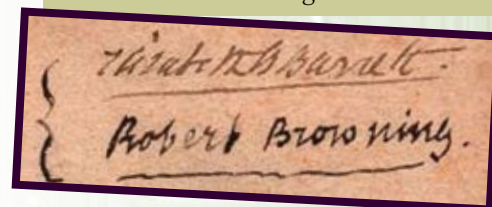 Elizabeth B Barrett.
Robert Browning.